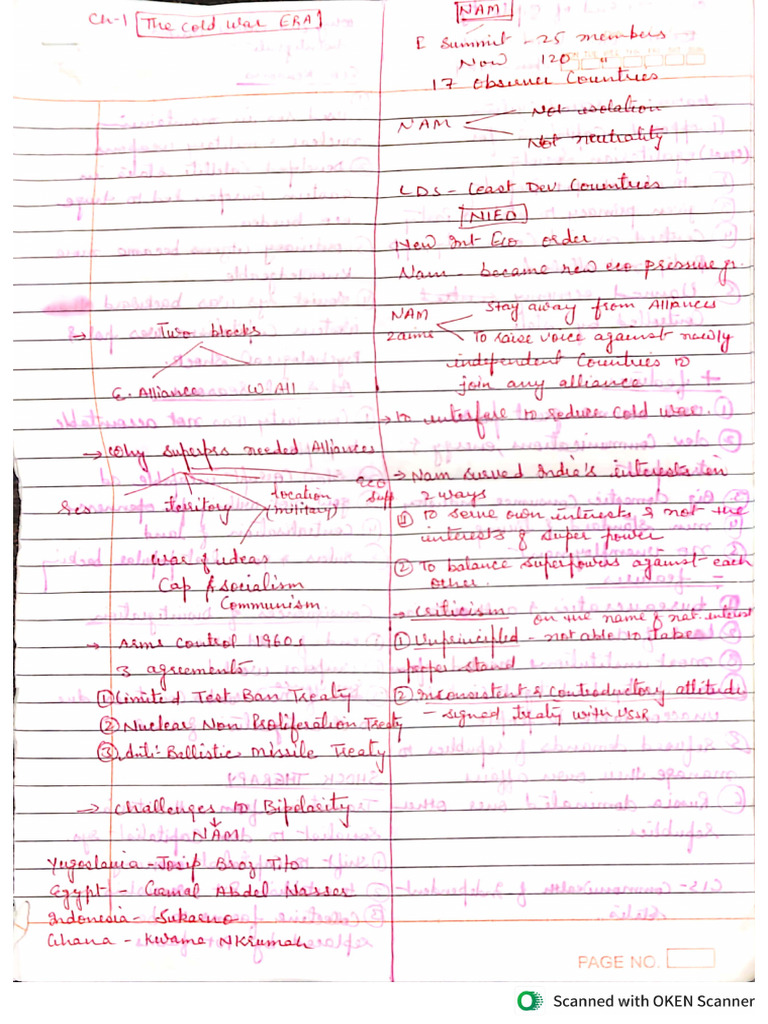 Ch-1 The Cold War ERA
→ Two blocks
E. Alliance W All
→ Why superprs needed Alliances
Res territory location (military) Eco Supp
War of ideas
Cap & socialism
Communism
→ Arms Control 1960s
3 agreements
① Limited Test Ban Treaty
② Nuclear Non Proliferation Treaty
③ Anti-Ballistic missile Treaty
→ challenges to Bipolarity
NAM
Yugoslavia - Josip Broz Tito
Egypt - Gamal Abdel Nasser
Indonesia - Sukarno
Ghana - Kwama NKrumah
NAM:
Summit - 25 members
Now 120 "
17 observer Countries
NAM Not isolation
Not neutrality
LDS - Least Dev Countries
NIEO
New Int Eco order
Nam - became new eco pressure gr.
NAM 2 aims Stay away from Alliances
To raise voice against newly
independent Countries to
join any alliance
→ to interfere to reduce cold war.
→ Nam served India's interests in
2 ways
① To serve own interests & not the
interests of super power
② To balance superpowers against each
other.
→ Criticism
on the name of nat. interest
① Unprincipled - not able to take
proper stand
② Inconsistent & Contradoctory attitude
- signed treaty with USSR
PAGE NO.
Scanned with OKEN Scanner